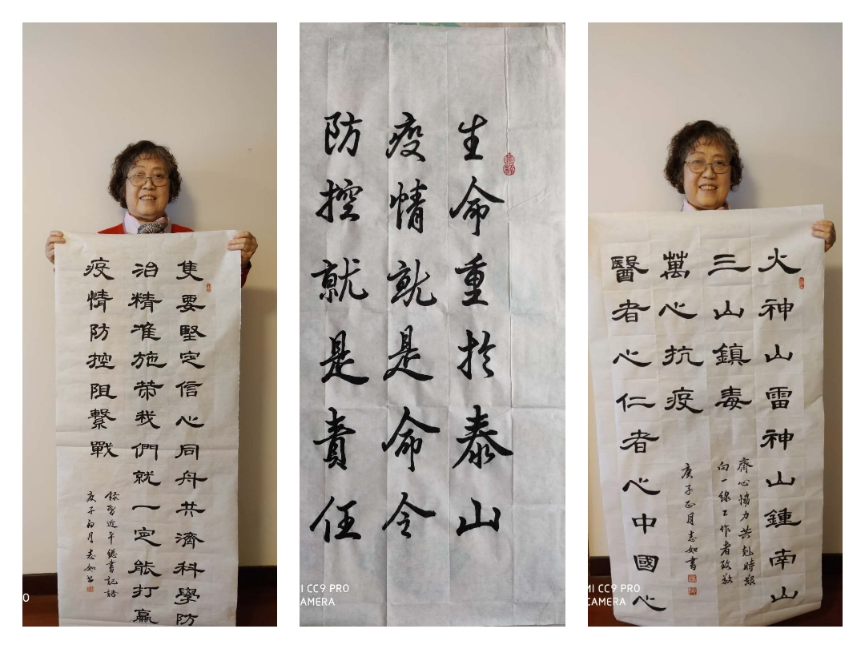 隻要堅定信心同舟共濟科學防
治精准施策我們就一定能打贏
疫情防控阻擊戰
錄習近平總書記語
庚子月志如書
生命重於泰山
疫情就是命令
防控就是責任
MI CC9 PRO
CAMERA
火神山雷神山鍾南山
三山鎮毒
萬心抗疫
醫者心仁者心中國心
齊心協力共尅時艱
向一線工作者致敬
庚子正月志如書
MI CC9 PRO
CAMERA